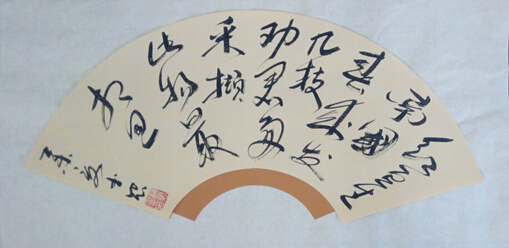 红豆生
南國
春来发
几枝
劝君多
采撷
此物最
相思